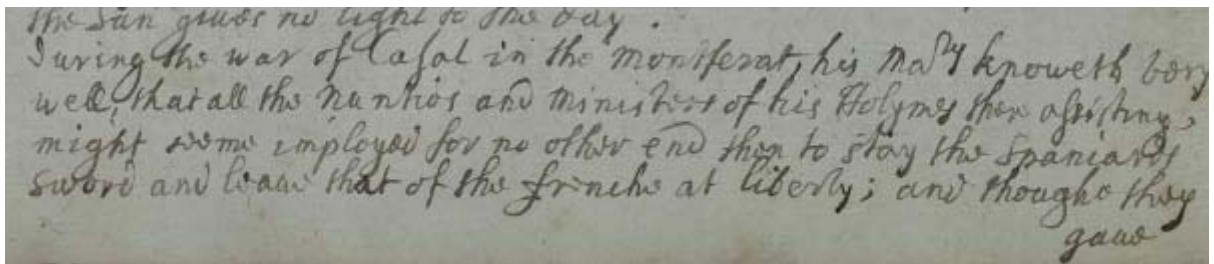 the Sun giues no light to the day.
During the war of Casal in the Montferat, his Maty knoweth very
well, that all the Nuntios and Ministers of his Holynes then assisting,
might seeme imployed for no other end then to stay the Spaniards
sword and leaue that of the frenche at liberty; and thoughe they
gaue